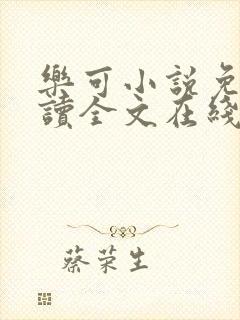 樂可小說免
讀全文在綫
蔡荣生